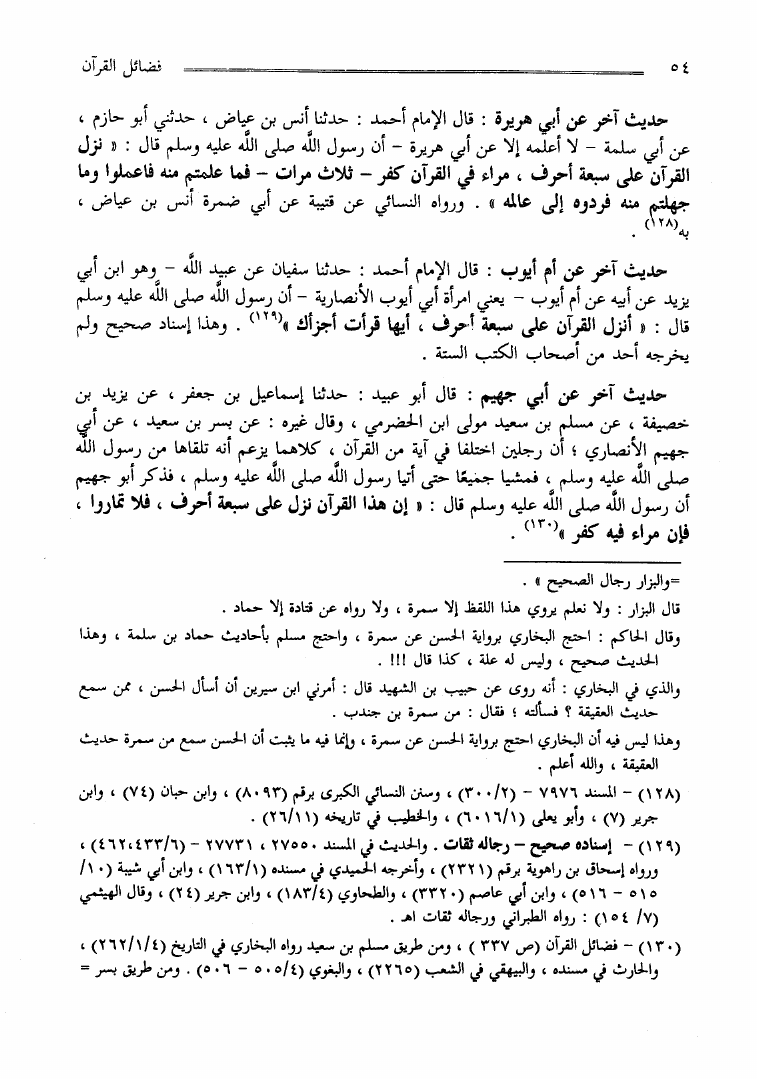 ٥٤ فضائل القرآن
حديث آخر عن أبي هريرة : قال الإمام أحمد : حدثنا أنس بن عياض ، حدثني أبو حازم ،
عن أبي سلمة – لا أعلمه إلا عن أبي هريرة – أن رسول اللَّه صلى اللَّه عليه وسلم قال : « نزل
القرآن على سبعة أحرف ، مراء في القرآن كفر – ثلاث مرات – فما علمتم منه فاعملوا وما
جهلتم منه فردوه إلى عالمه » . ورواه النسائي عن قتيبة عن أبي ضمرة أنس بن عياض ،
به(١٢٨) .
حديث آخر عن أم أيوب : قال الإمام أحمد : حدثنا سفيان عن عبيد اللَّه – وهو ابن أبي
يزيد عن أبيه عن أم أيوب – يعني امرأة أبي أيوب الأنصارية – أن رسول اللَّه صلى اللَّه عليه وسلم
قال : « أنزل القرآن على سبعة أحرف ، أيها قرأت أجزأك »(١٢٩) . وهذا إسناد صحيح ولم
يخرجه أحد من أصحاب الكتب الستة .
حديث آخر عن أبي جهيم : قال أبو عبيد : حدثنا إسماعيل بن جعفر ، عن يزيد بن
خصيفة ، عن مسلم بن سعيد مولى ابن الحضرمي ، وقال غيره : عن بسر بن سعيد ، عن أبي
جهيم الأنصاري ؛ أن رجلين اختلفا في آية من القرآن ، كلاهما يزعم أنه تلقاها من رسول اللَّه
صلى اللَّه عليه وسلم ، فمشيا جميعًا حتى أتيا رسول اللَّه صلى اللَّه عليه وسلم ، فذكر أبو جهيم
أن رسول اللَّه صلى اللَّه عليه وسلم قال : « إن هذا القرآن نزل على سبعة أحرف ، فلا تماروا ،
فإن مراء فيه كفر »(١٣٠) .
=والبزار رجال الصحيح » .
قال البزار : ولا نعلم يروي هذا اللفظ إلا سمرة ، ولا رواه عن قتادة إلا حماد .
وقال الحاكم : احتج البخاري برواية الحسن عن سمرة ، واحتج مسلم بأحاديث حماد بن سلمة ، وهذا
الحديث صحيح ، وليس له علة ، كذا قال !!! .
والذي في البخاري : أنه روى عن حبيب بن الشهيد قال : أمرني ابن سيرين أن أسأل الحسن ، ممن سمع
حديث العقيقة ؟ فسألته ؛ فقال : من سمرة بن جندب .
وهذا ليس فيه أن البخاري احتج برواية الحسن عن سمرة ، وإنما فيه ما يثبت أن الحسن سمع من سمرة حديث
العقيقة ، والله أعلم .
(١٢٨) – المسند ٧٩٧٦ – (٣٠٠/٢) ، وسنن النسائي الكبرى برقم (٨٠٩٣) ، وابن حبان (٧٤) ، وابن
جرير (٧) ، وأبو يعلى (٦٠١٦/١) ، والخطيب في تاريخه (٢٦/١١) .
(١٢٩) – إسناده صحيح – رجاله ثقات . والحديث في المسند ٢٧٥٥٠ ، ٢٧٧٣١ – (٤٦٢،٤٣٣/٦) ،
ورواه إسحاق بن راهوية برقم (٢٣٢١) ، وأخرجه الحميدي في مسنده (١٦٣/١) ، وابن أبي شيبة (١٠/
٥١٥ – ٥١٦) ، وابن أبي عاصم (٣٣٢٠) ، والطحاوي (١٨٣/٤) ، وابن جرير (٢٤) ، وقال الهيثمي
(٧/ ١٥٤) : رواه الطبراني ورجاله ثقات اهـ .
(١٣٠) – فضائل القرآن (ص ٣٣٧ ) ، ومن طريق مسلم بن سعيد رواه البخاري في التاريخ (٢٦٢/١/٤) ،
والحارث في مسنده ، والبيهقي في الشعب (٢٢٦٥) ، والبغوي (٥٠٥/٤ – ٥٠٦) . ومن طريق بسر =